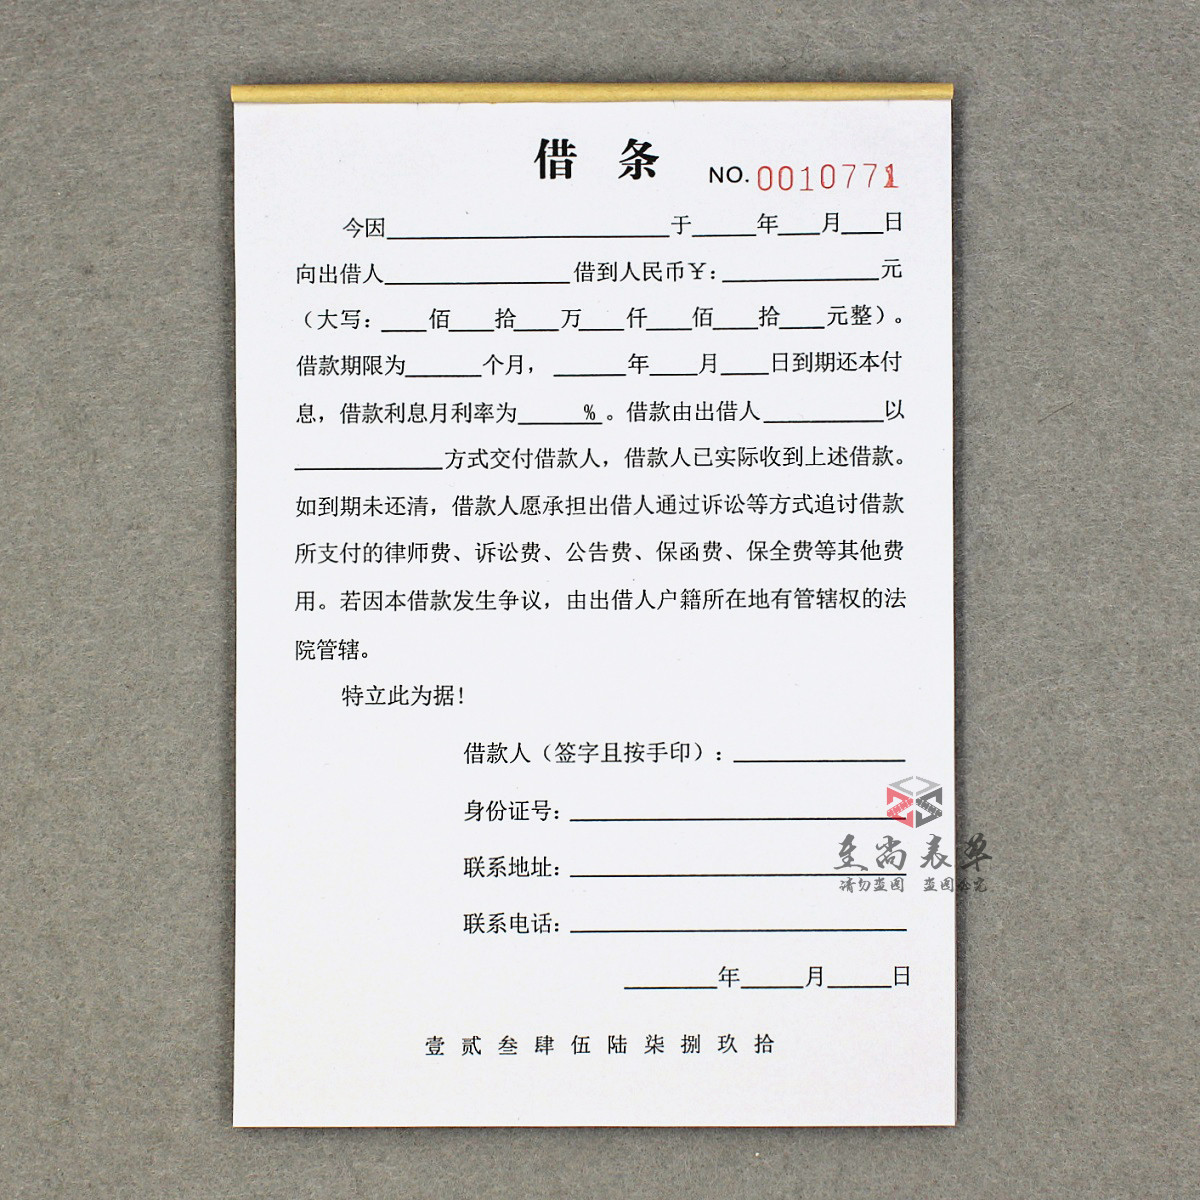 借 条
NO. 0010771
今因____于____年____月____日
向出借人____借到人民币￥：____元
（大写：____佰____拾____万____仟____佰____拾____元整）。
借款期限为____个月，____年____月____日到期还本付
息，借款利息月利率为____%。借款由出借人____以
____方式交付借款人，借款人已实际收到上述借款。
如到期未还清，借款人愿承担出借人通过诉讼等方式追讨借款
所支付的律师费、诉讼费、公告费、保函费、保全费等其他费
用。若因本借款发生争议，由出借人户籍所在地有管辖权的法
院管辖。
特立此为据!
借款人（签字且按手印）：____
身份证号：____
联系地址：____
联系电话：____
____年____月____日
壹 贰 叁 肆 伍 陆 柒 捌 玖 拾
尚表单
请勿盗图 盗图必究